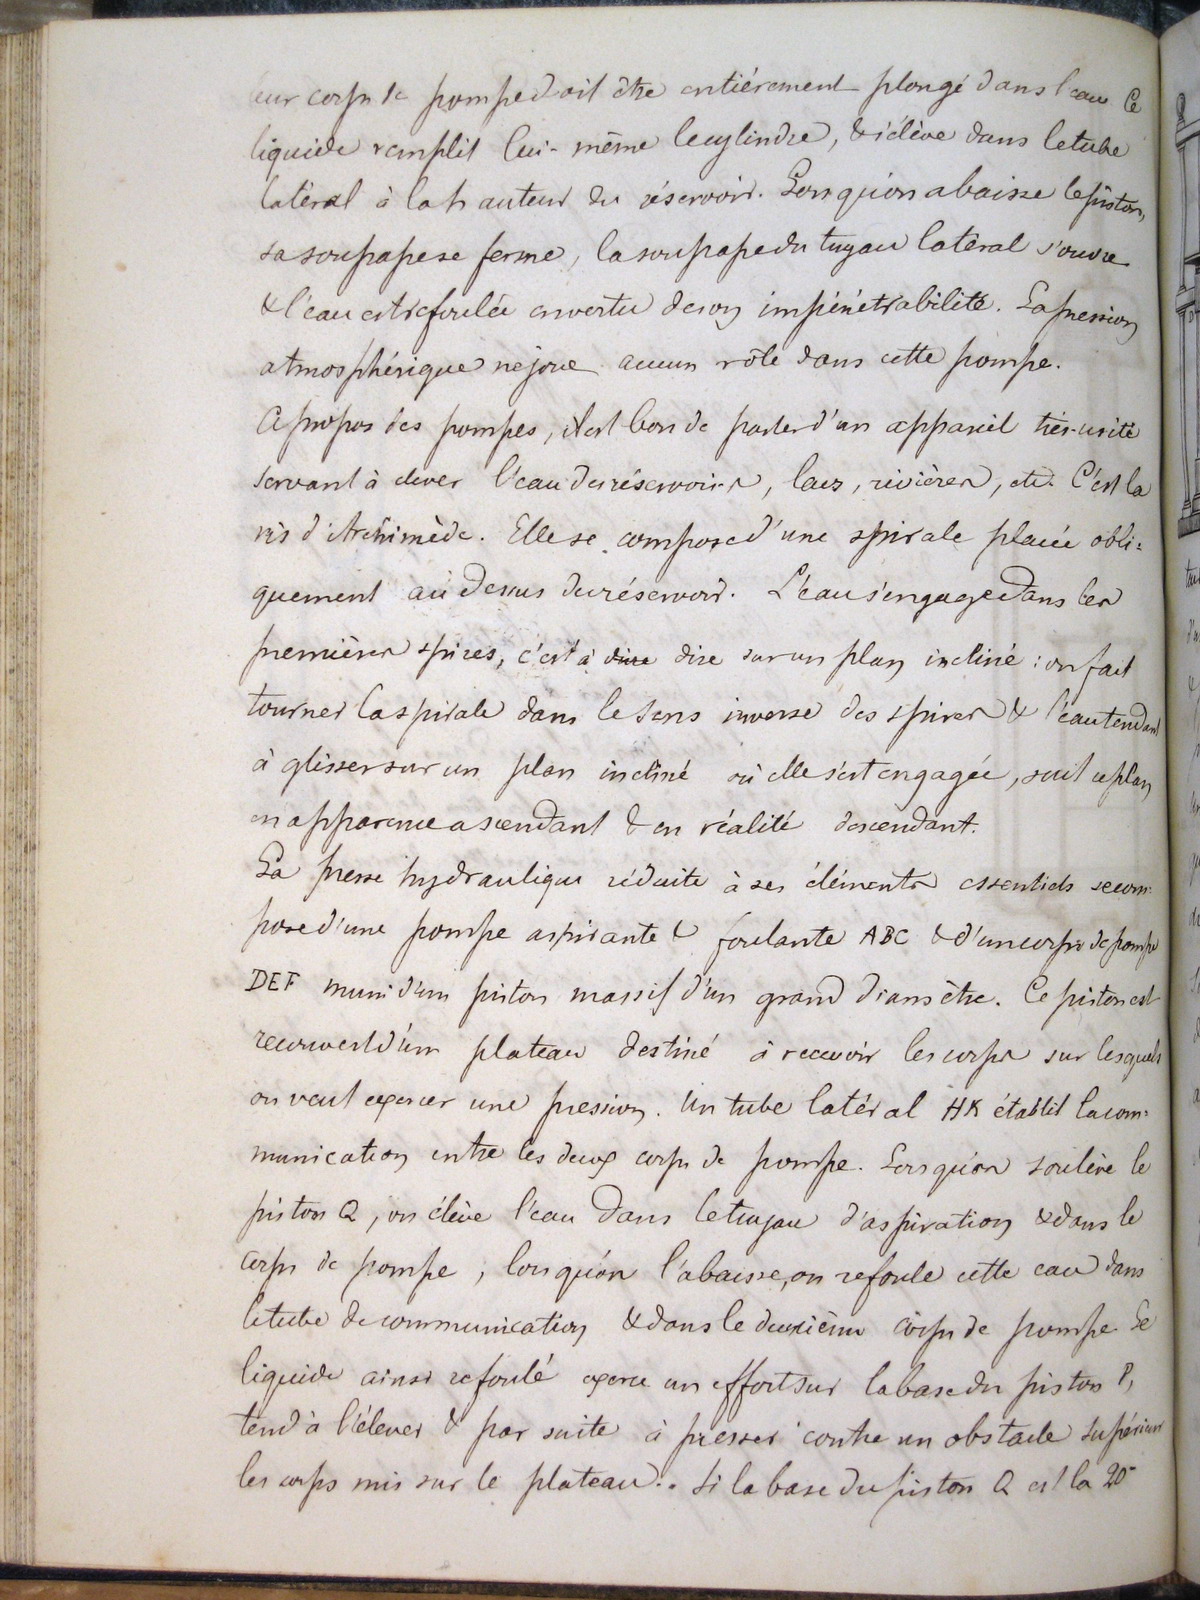 leur corps de pompe doit être entiérement plongé dans l'eau Ce
liquide remplit lui-même le cylindre, & s'élève dans le tube
latéral à la hauteur du réservoir. Lorsqu'on abaisse le piston,
sa soupape se ferme, la soupape du tuyau latéral s'ouvre
& l'eau est refoulée en vertu de son impénétrabilité. La pression
atmosphérique ne joue aucun rôle dans cette pompe.
A propos des pompes, il est bon de parler d'un appareil très-usité
servant à élever l'eau des réservoirs, lacs, rivières, etc. C'est la
vis d'Archimède. Elle se compose d'une spirale placée obli-
quement au dessus du réservoir. L'eau s'engage dans les
premières spires, c'est à dire dire sur un plan incliné : on fait
tourner la spirale dans le sens inverse des spires & l'eau tendant
à glisser sur un plan incliné où elle s'est engagée, suit ce plan
en apparence ascendant & en réalité descendant.
La presse hydraulique réduite à ses éléments essentiels se com-
pose d'une pompe aspirante & foulante ABC & d'un corps de pompe
DEF muni d'un piston massif d'un grand diamètre. Ce piston est
recouvert d'un plateau destiné à recevoir les corps sur lesquels
on veut exercer une pression. Un tube latéral HK établit la com-
munication entre les deux corps de pompe. Lorsqu'on soulève le
piston Q, on élève l'eau dans le tuyau d'aspiration & dans le
corps de pompe, lorsqu'on l'abaisse, on refoule cette eau dans
le tube de communication & dans le deuxième corps de pompe. Le
liquide ainsi refoulé exerce un effort sur la base du piston P,
tend à l'élever & par suite à presser contre un obstacle supérieur
les corps mis sur le plateau.. Si la base du piston Q est la 20e